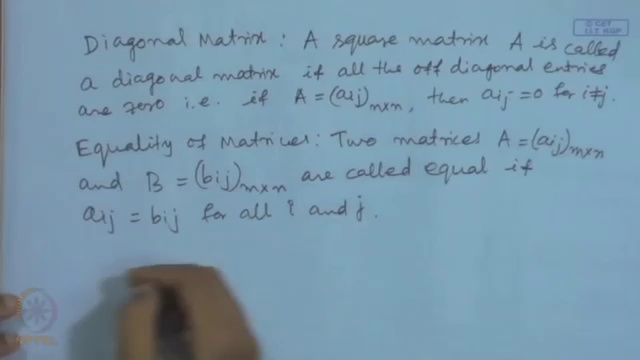 © CET
I.I.T. KGP
Diagonal Matrix : A square matrix A is called
a diagonal matrix if all the off diagonal entries
are zero i.e. if A = (aij)n×n, then aij = 0 for i≠j.
Equality of Matrices: Two matrices A = (aij)m×n
and B = (bij)m×n are called equal if
aij = bij for all i and j.
NPTEL